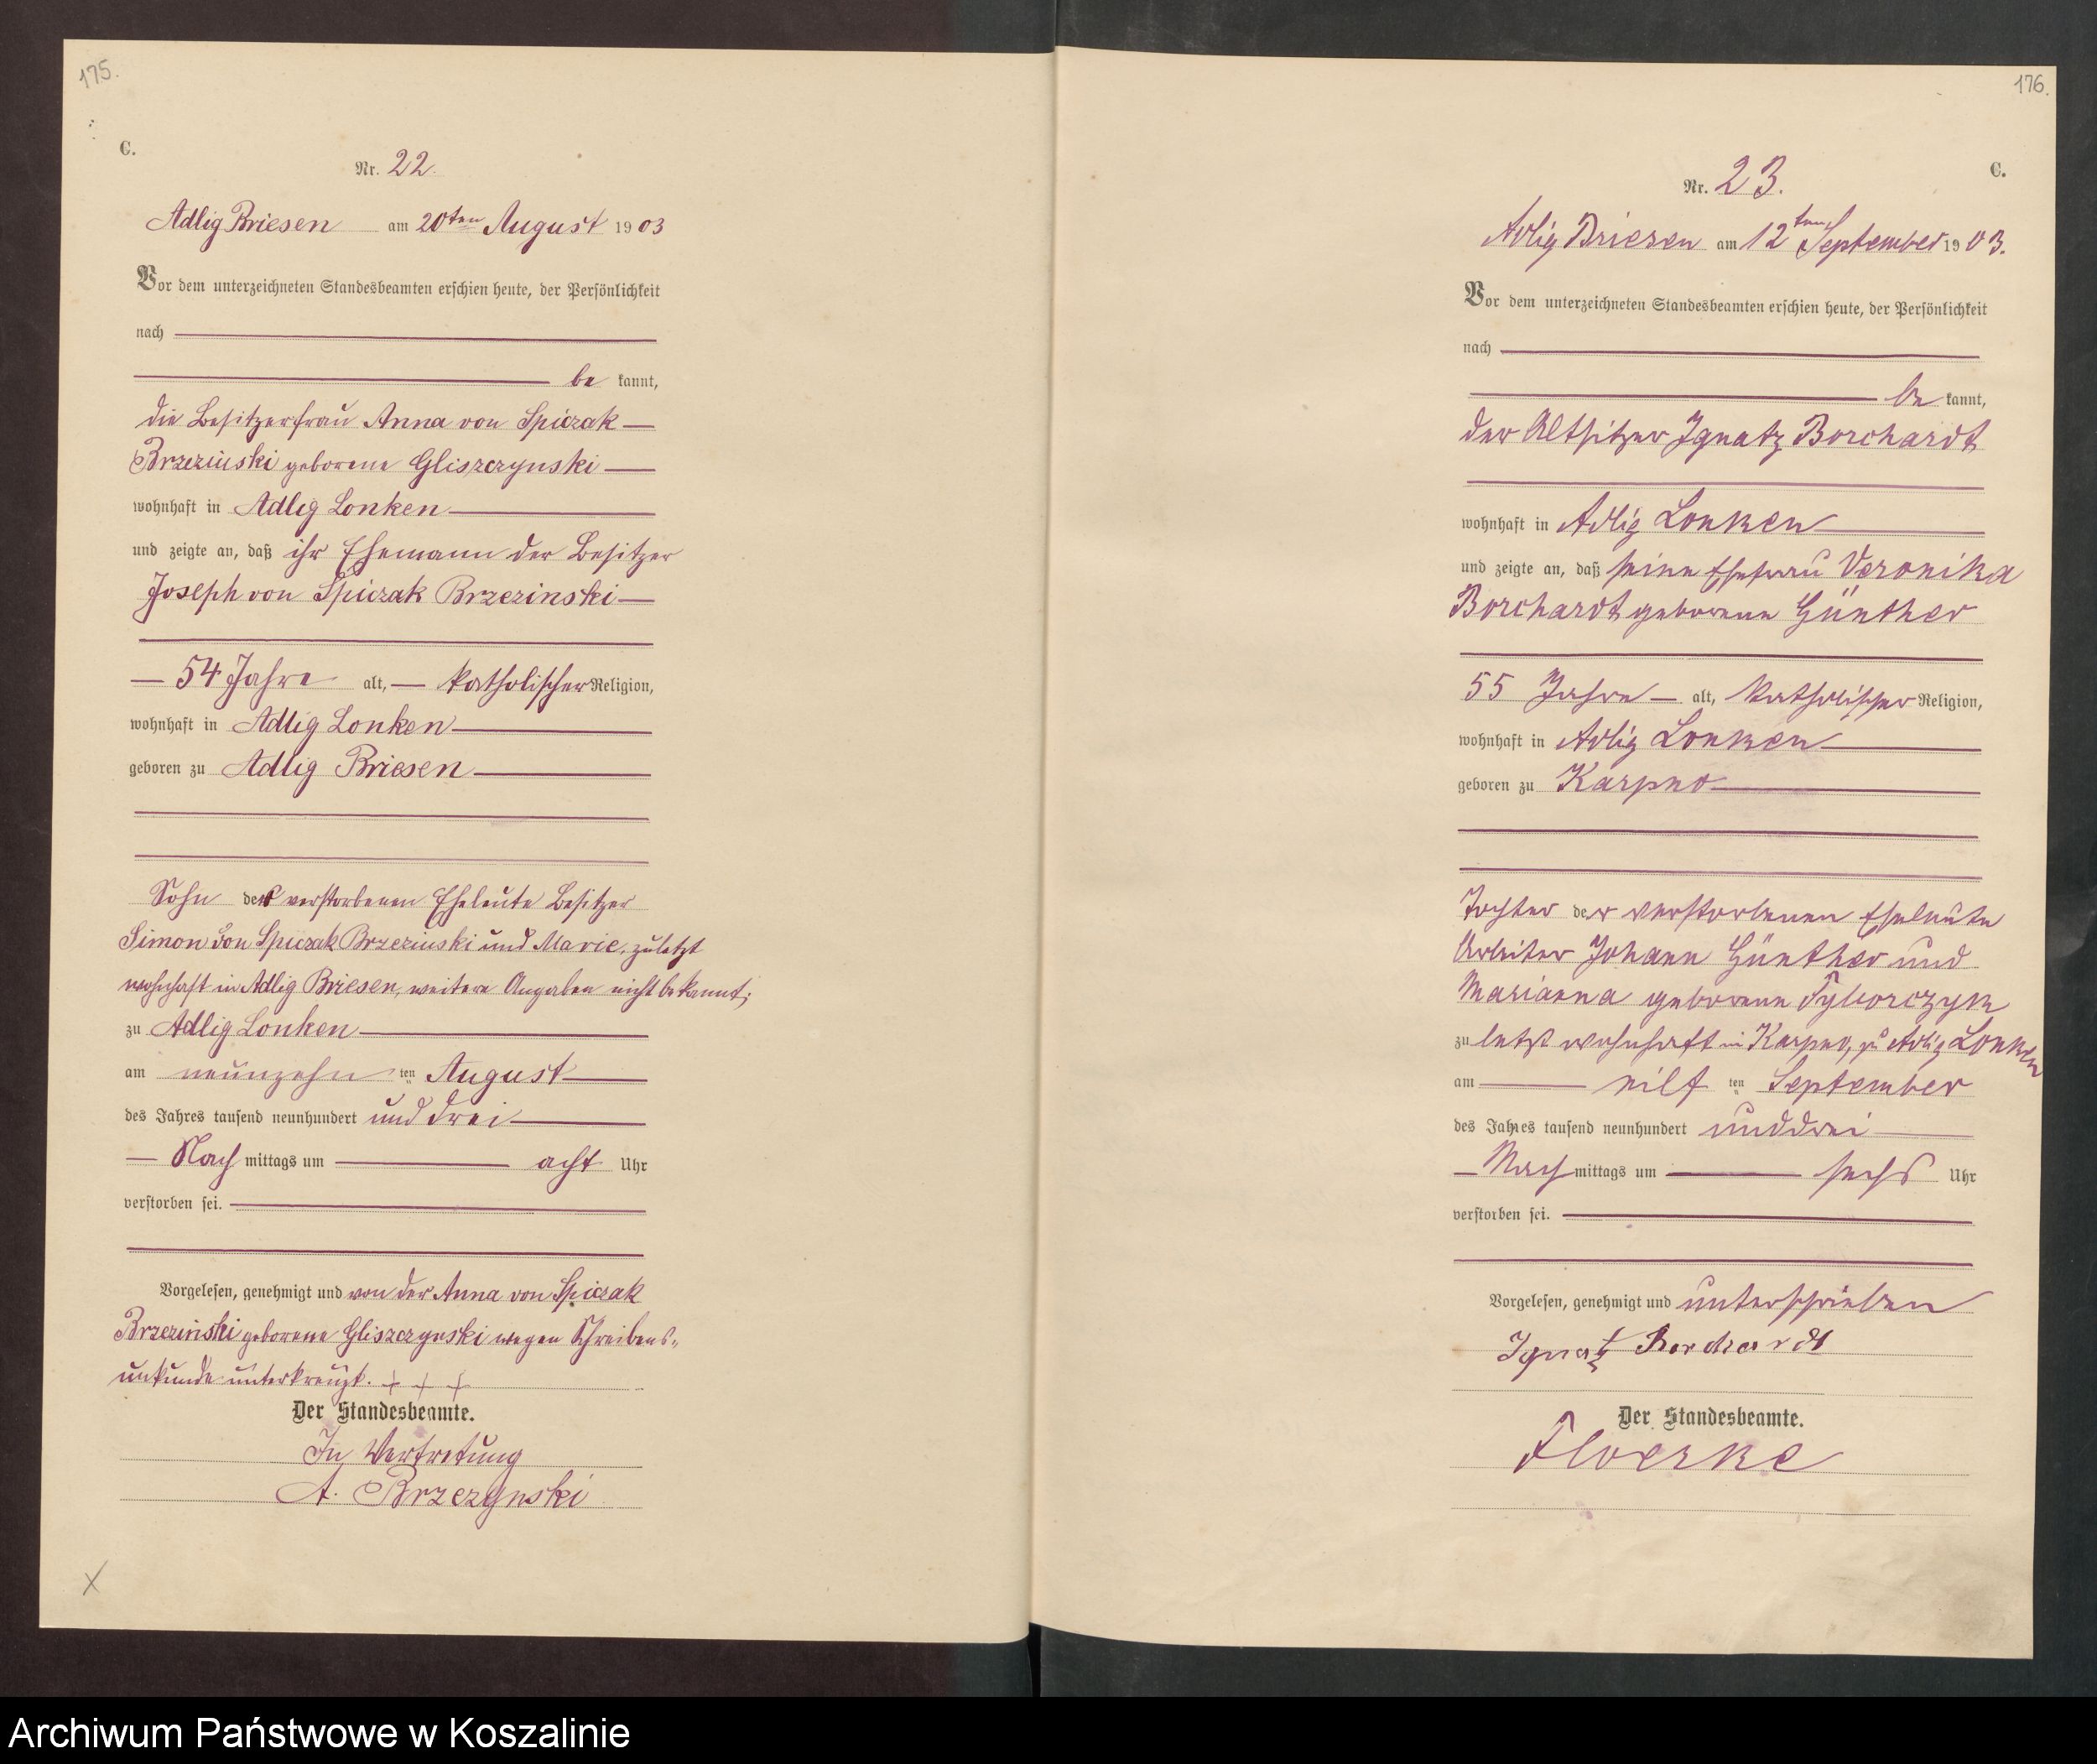 175.
C.
Nr. 22.
Adlig Briesen am 20ten August 1903
Vor dem unterzeichneten Standesbeamten erschien heute, der Persönlichkeit
nach
be kannt,
die Besitzerfrau Anna von Spiczak
Brzezinski geborene Gliszczynski
wohnhaft in Adlig Lonken
und zeigte an, daß ihr Ehemann der Besitzer
Joseph von Spiczak Brzezinski
54 Jahre alt, katholischer Religion,
wohnhaft in Adlig Lonken
geboren zu Adlig Briesen
Sohn der verstorbenen Eheleute Besitzer
Simon von Spiczak Brzezinski und Marie, zuletzt
wohnhaft in Adlig Briesen, weitere Angaben nicht bekannt;
zu Adlig Lonken
am neunzehn ten August
des Jahres tausend neunhundert und drei
Nach mittags um acht Uhr
verstorben sei.
Vorgelesen, genehmigt und von der Anna von Spiczak
Brzezinski geborene Gliszczynski wegen Schreibens-
unkunde unterkreuzt. + + +
Der Standesbeamte.
In Vertretung
A. Brzezynski
176.
C.
Nr. 23.
Adlig Briesen am 12ten September 1903.
Vor dem unterzeichneten Standesbeamten erschien heute, der Persönlichkeit
nach
be kannt,
der Altsitzer Ignatz Borchardt
wohnhaft in Adlig Lonken
und zeigte an, daß seine Ehefrau Veronika
Borchardt geborene Günther
55 Jahre alt, katholischer Religion,
wohnhaft in Adlig Lonken
geboren zu Karpno
Tochter der verstorbenen Eheleute
Arbeiter Johann Günther und
Marianna geborene Tyborczyk
zu letzt wohnhaft in Karpno, zu Adlig Lonken
am eilf ten September
des Jahres tausend neunhundert unddrei
Nach mittags um sechs Uhr
verstorben sei.
Vorgelesen, genehmigt und unterschrieben
Ignatz Borchardt
Der Standesbeamte.
Floerke
Archiwum Państwowe w Koszalinie